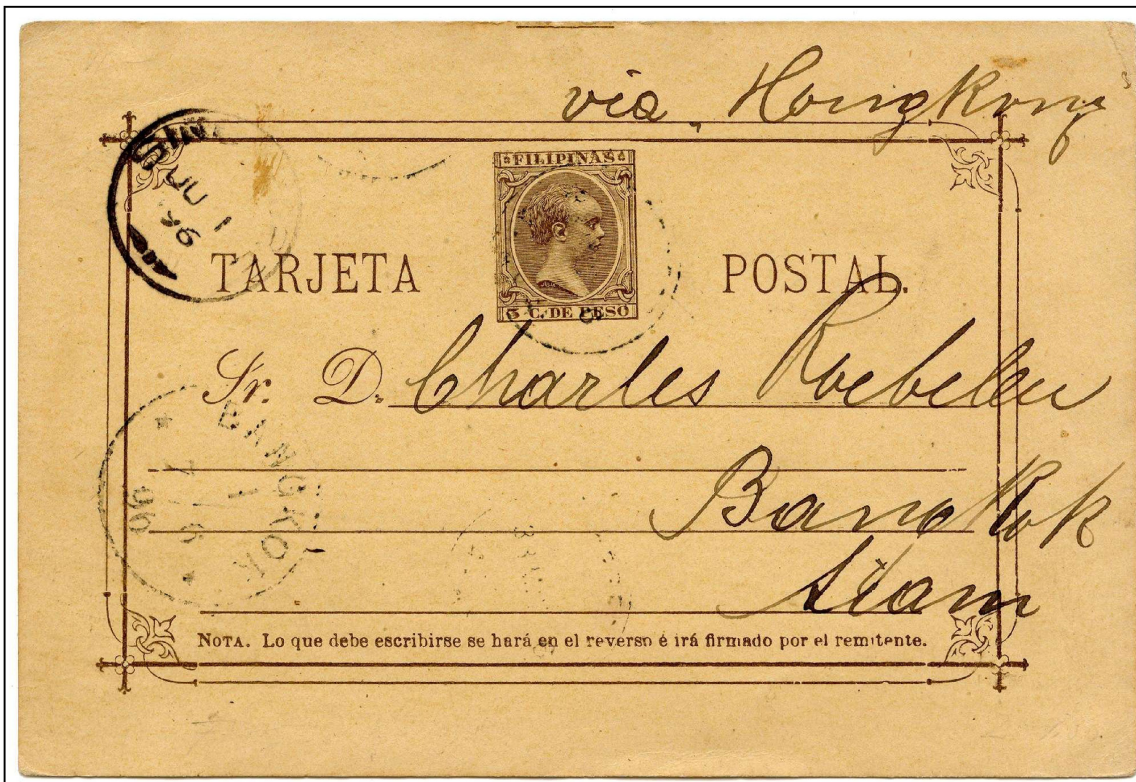 via, Hongkong
FILIPINAS
JU 1
96
TARJETA POSTAL.
3 C. DE PESO
Sr. D. Charles Roebelen
BANGKOK
7
6
96
Bangkok
Siam
NOTA. Lo que debe escribirse se hará en el reverso é irá firmado por el remitente.